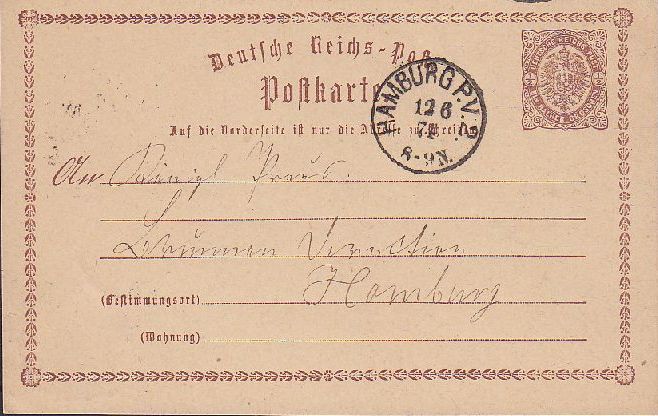 Deutsche Reichs-Post
Postkarte
HAMBURG P.V. 2.
12 6
74
8-9N.
Auf die Vorderseite ist nur die Adresse zu schreiben
An Königl Preus.
Brunnen Direction
Homburg
(Bestimmungsort)
(Wohnung)